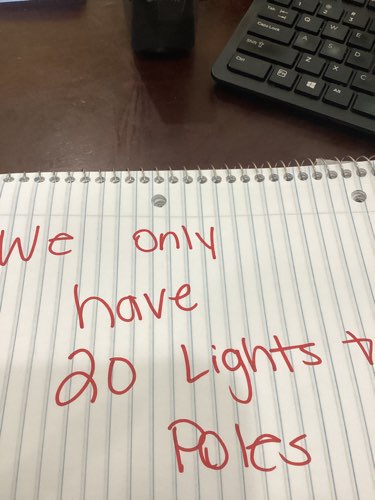 We only
have
20 Lights +
Poles
Tab
Caps Lock
Shift
Ctrl
Alt
Q
W
E
A
S
D
Z
X
C